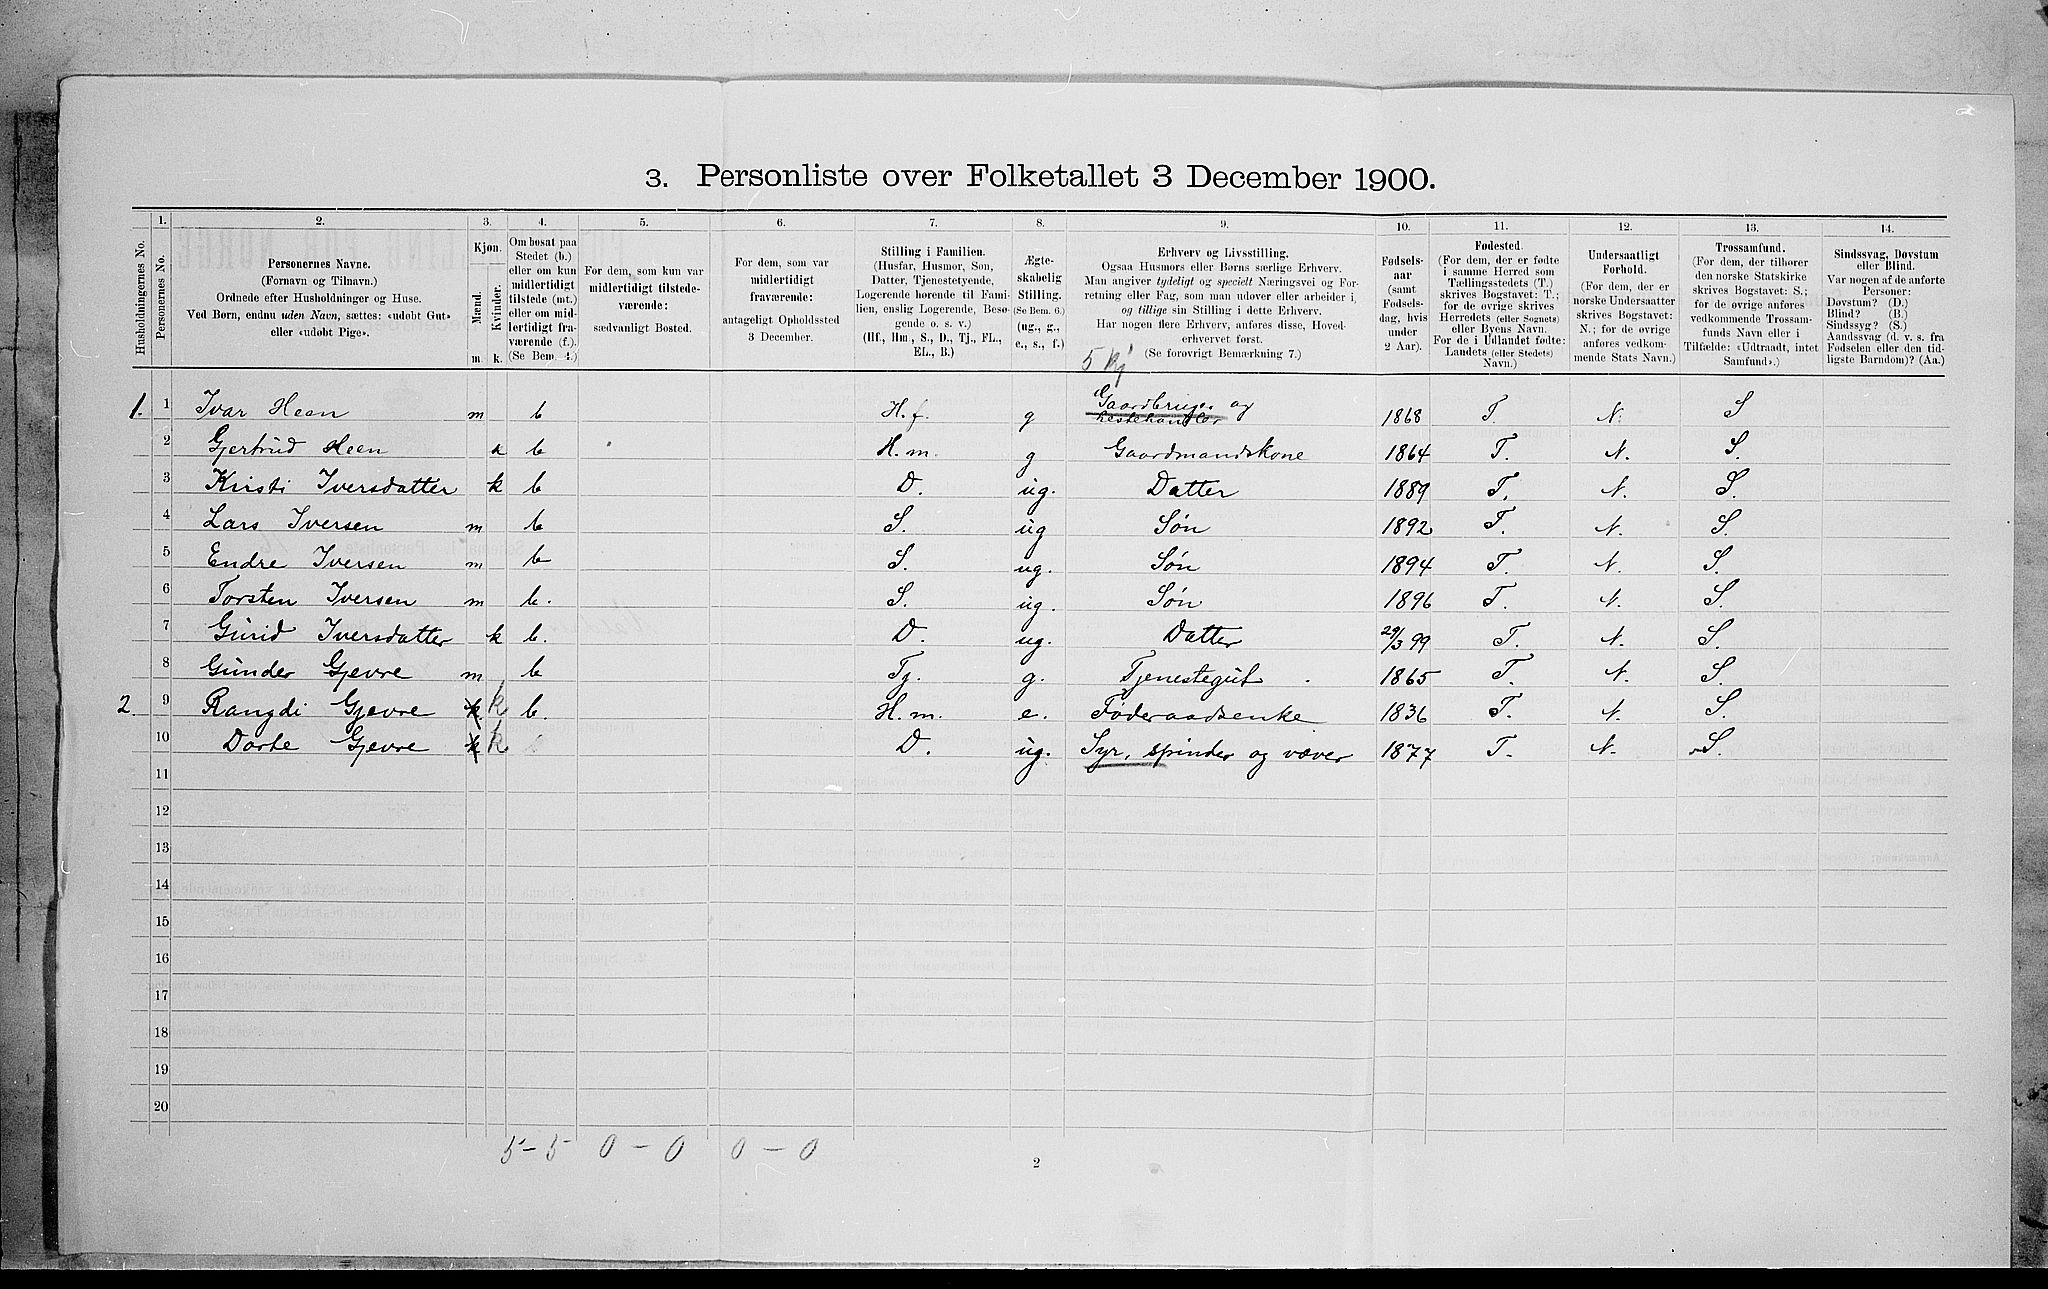 3. Personliste over Folketallet 3 December 1900.
Husholdningernes No.
1.
Personernes No.
2.
Personernes Navne.
(Fornavn og Tilnavn.)
Ordnede efter Husholdninger og Huse.
Ved Børn, endnu uden Navn, sættes: «udøbt Gut»
eller «udøbt Pige».
3.
Kjøn.
Mænd.
Kvinder.
m. k.
4.
Om bosat paa
Stedet (b.)
eller om kun
midlertidigt
tilstede (mt.)
eller om mid-
lertidigt fra-
værende (f.).
(Se Bem. 4.)
5.
For dem, som kun var
midlertidigt tilstede-
værende:
sædvanligt Bosted.
6.
For dem, som var
midlertidigt
fraværende:
antageligt Opholdssted
3 December.
7.
Stilling i Familien.
(Husfar, Husmor, Søn,
Datter, Tjenestetyende,
Logerende hørende til Fami-
lien, enslig Logerende, Besø-
gende o. s. v.)
(Hf., Hm., S., D., Tj., FL.,
EL., B.)
8.
Ægte-
skabelig
Stilling.
(Se Bem. 6.)
(ug., g.,
e., s., f.)
9.
Erhverv og Livsstilling.
Ogsaa Husmors eller Børns særlige Erhverv.
Man angiver tydeligt og specielt Næringsvei og For-
retning eller Fag, som man udøver eller arbeider i,
og tillige sin Stilling i dette Erhverv.
Har nogen flere Erhverv, anføres disse, Hoved-
erhvervet først.
(Se forøvrigt Bemærkning 7.)
5 Kj
10.
Fødsels-
aar
(samt
Fødsels-
dag, hvis
under
2 Aar).
11.
Fødested.
(For dem, der er fødte
i samme Herred som
Tællingsstedets (T.)
skrives Bogstavet: T.;
for de øvrige skrives
Herredets (eller Sognets)
eller Byens Navn.
For de i Udlandet fødte:
Landets (eller Stedets)
Navn.)
12.
Undersaatligt
Forhold.
(For dem, der er
norske Undersaatter
skrives Bogstavet:
N.; for de øvrige
anføres vedkom-
mende Stats Navn.)
13.
Trossamfund.
(For dem, der tilhører
den norske Statskirke
skrives Bogstavet: S.;
for de øvrige anføres
vedkommende Trossam-
funds Navn eller i
Tilfælde: «Udtraadt, intet
Samfund».)
14.
Sindssvag, Døvstum
eller Blind.
Var nogen af de anførte
Personer:
Døvstum? (D.)
Blind? (B.)
Sindssyg? (S.)
Aandssvag (d. v. s. fra
Fødselen eller den tid-
ligste Barndom)? (Aa.)
1. 1 Ivar Heen m b H.f. g Gaardbruger og hestehandler 1868 T. N. S
2 Gjertrud Heen k b H.m. g Gaardmandskone 1864 T. N. S.
3 Kristi Iversdatter k b D. ug. Datter 1889 T. N. S.
4 Lars Iversen m b S. ug Søn 1892 T. N. S.
5 Endre Iversen m b S. ug. Søn 1894 T. N. S.
6 Torsten Iversen m b. S. ug. Søn 1896 T. N. S.
7 Gurid Iversdatter k b. D. ug. Datter 29/3 99 T. N. S.
8 Gunder Gjevre m b Tj. g. Tjenestegut 1865 T. N. S.
2. 9 Rangdi Gjevre k k b. H.m. e. Føderaadsenke 1836 T. N. S.
10 Dorte Gjevre k k b D. ug. Syr, spinder og væver 1877 T. N. S.
11
12
13
14
15
16
17
18
19
20
5 - 5 0 - 0 0 - 0
2